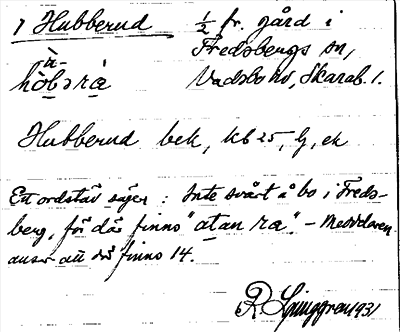 1 Hubberud ½ fr. gård i
Fredsbergs sn,
Vadsbo hd, Skarab. l.
ìn-
hòbərà
Hubberud bek, kb 25, G, ek
Ett ordstäv säger: Inte svårt å bo i Freds-
berg, för där finns "atan ra". - Meddelaren
anser att då finns 14.
R. Ljunggren 1931